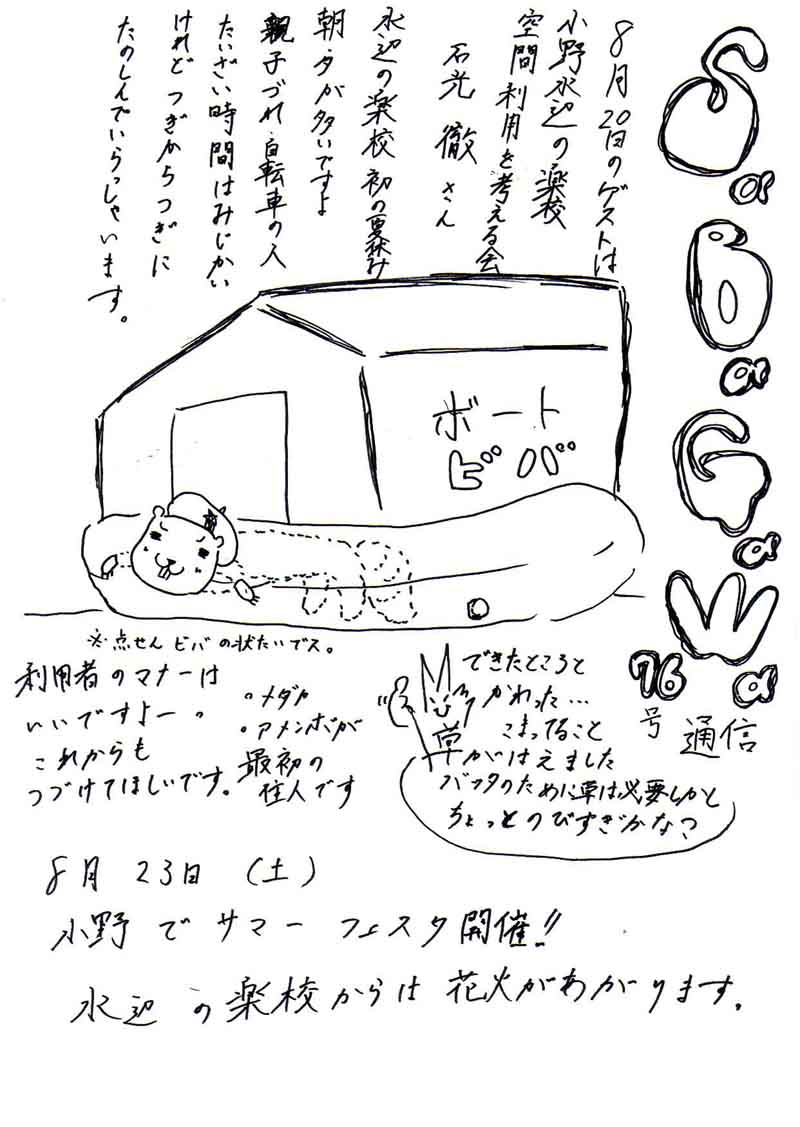 SaBaGaWa
76号 通信
8月20日のゲストは
小野水辺の楽校
空間利用を考える会
石光 徹 さん
水辺の楽校初の夏休み
朝・夕が多いですよ
親子づれ・自転車の人
たいざい時間はみじかい
けれどつぎからつぎに
たのしんでいらっしゃいます。
ボート
ビバ
※点せんビバの状たいデス。
利用者のマナーは
いいですよー。
これからも
つづけてほしいです。
・メダカ
・アメンボが
最初の
住人です
できたところと
かわった…
こまってること
草がはえました
バッタのために草は必要しかと
ちょっとのびすぎかな?
8月 23日 (土)
小野でサマーフェスタ開催!!
水辺の楽校からは花火があがります。